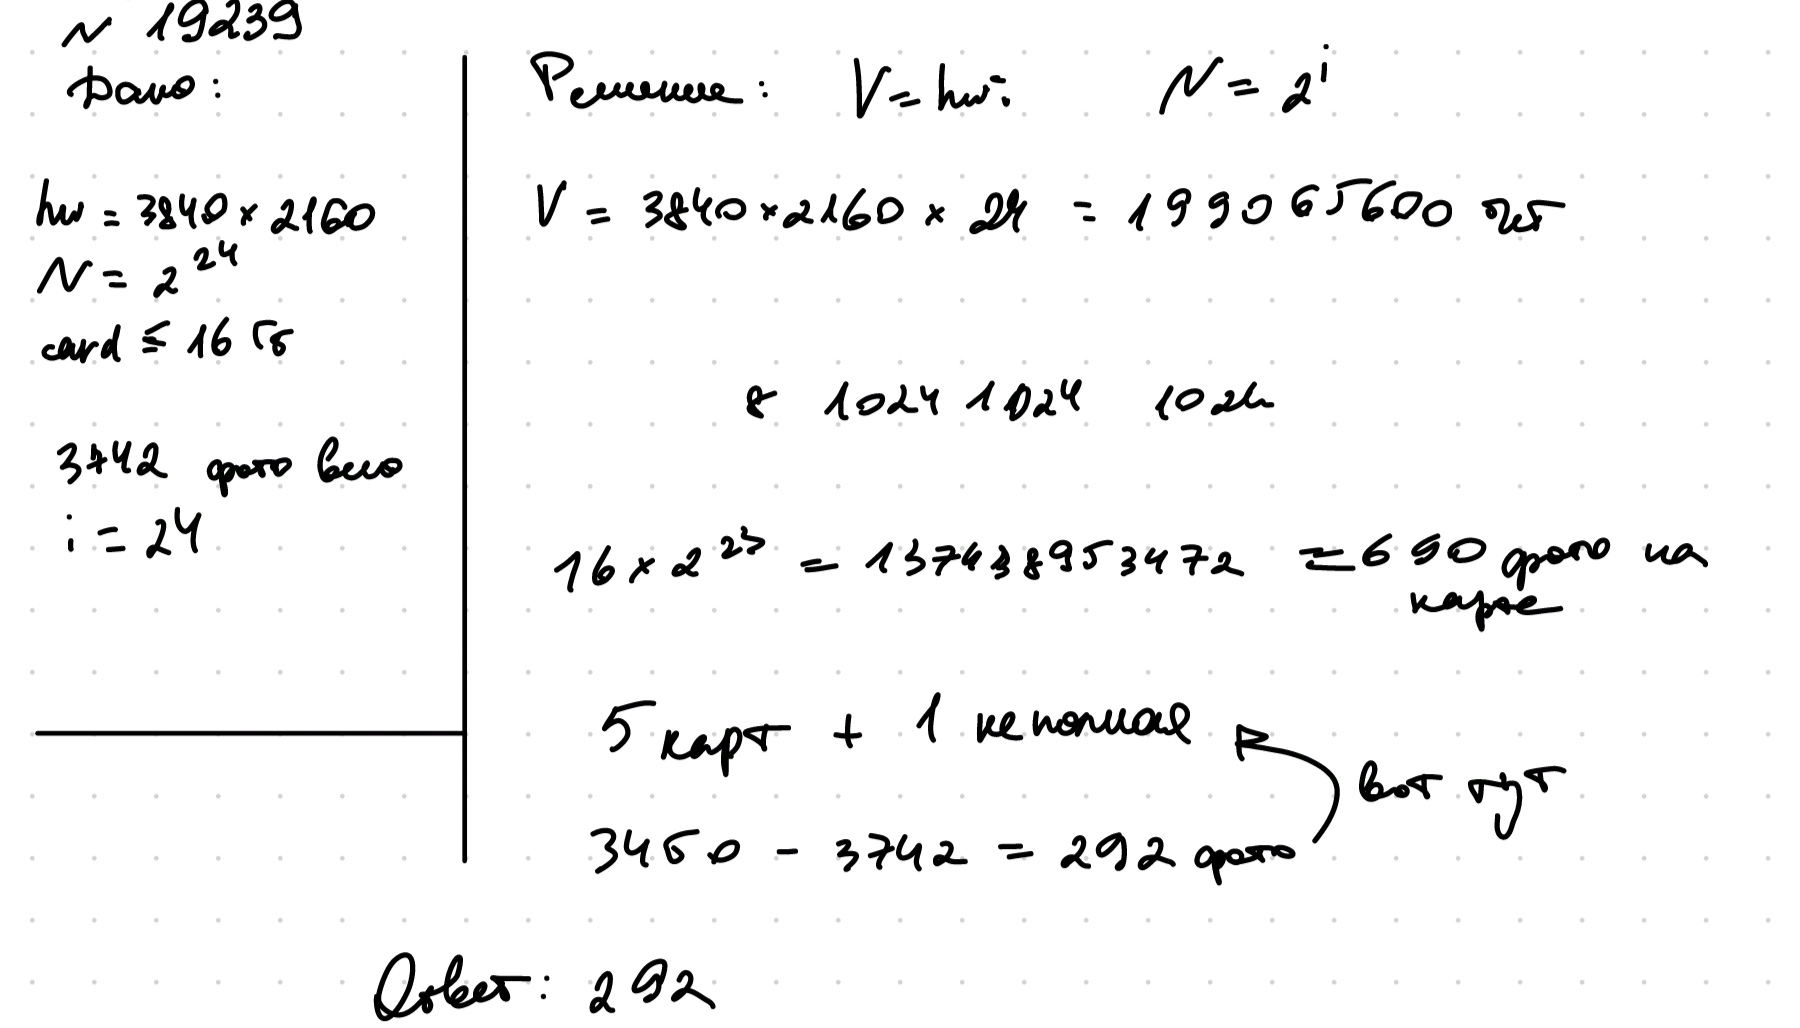 N 19239
Дано:
hw = 3840 × 2160
N = 2^24
card ≤ 16 Гб
3742 фото всего
i = 24
Решение: V = hwi N = 2^i
V = 3840 × 2160 × 24 = 199065600 бит
8 1024 1024 1024
16 × 2^23 = 137438953472 = 690 фото на
карте
5 карт + 1 неполная
вот тут
3450 - 3742 = 292 фото
Ответ: 292